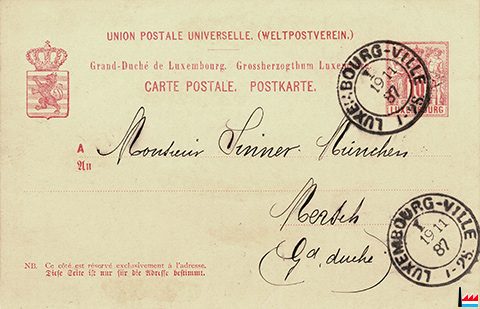 UNION POSTALE UNIVERSELLE. (WELTPOSTVEREIN.)
Grand-Duché de Luxembourg. Grossherzogthum Luxem
CARTE POSTALE. POSTKARTE.
LUXEMBOURG-VILLE
I
19 11
87
1-2S.
LUXEMBOURG
A Monsieur Sinner-München
An
Mersch
(Gd duché)
LUXEMBOURG-VILLE
I
19 11
87
1-2S.
NB. Ce côté est réservé exclusivement à l'adresse.
Diese Seite ist nur für die Adresse bestimmt.